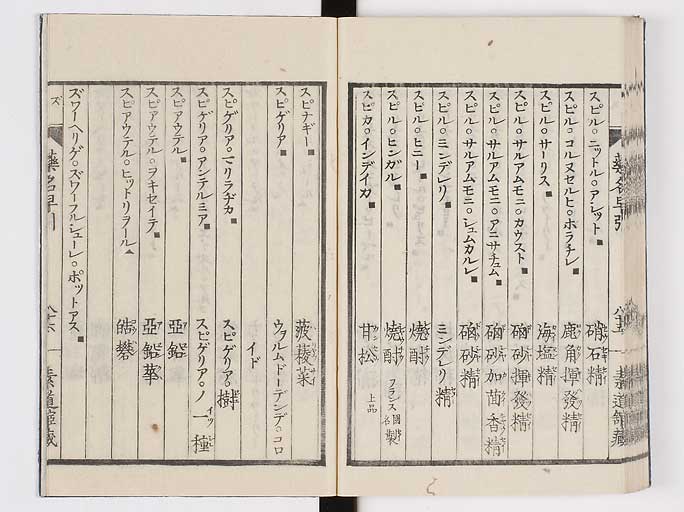 藥名早引 八十五 素道館藏
スピル。ニットル。アシット■ 硝石精
スピル。コルヌセルヒ。ホラチレ■ 鹿角揮發精
スピル。サーリス■ 海塩精
スピル。サルアムモニ。カウスト■ 硇砂揮發精
スピル。サルアムモニ。アニサチュム■ 硇砂加茴香精
スピル。サルアムモニ。シュムカルレ■ 硇砂精
スピル。ミンデレリ■ ミンデレリ精
スピル。ヒニー■ 燒酎
スピル。ヒンガル■ 燒酎 フランス國製名
スピカ。インデイカ■ 甘松 上品
スピナギー■ 菠薐菜
スピゲリア■ ウヲルムドーデンデ。コロイド
スピゲリア。マリラヂカ■ スピゲリア。樹
スピゲリア。アンテルミア■ スピゲリア。ノ一種
スピアウテル■ 亞鉛
スピアウテル。ヲキセイデ■ 亞鉛華
スピアウテル。ヒットリヲール▲ 皓礬
ズワーヘリゲ。ズワーフルシューレ。ポットアス■
ズ 藥名早引 八十六 素道館藏